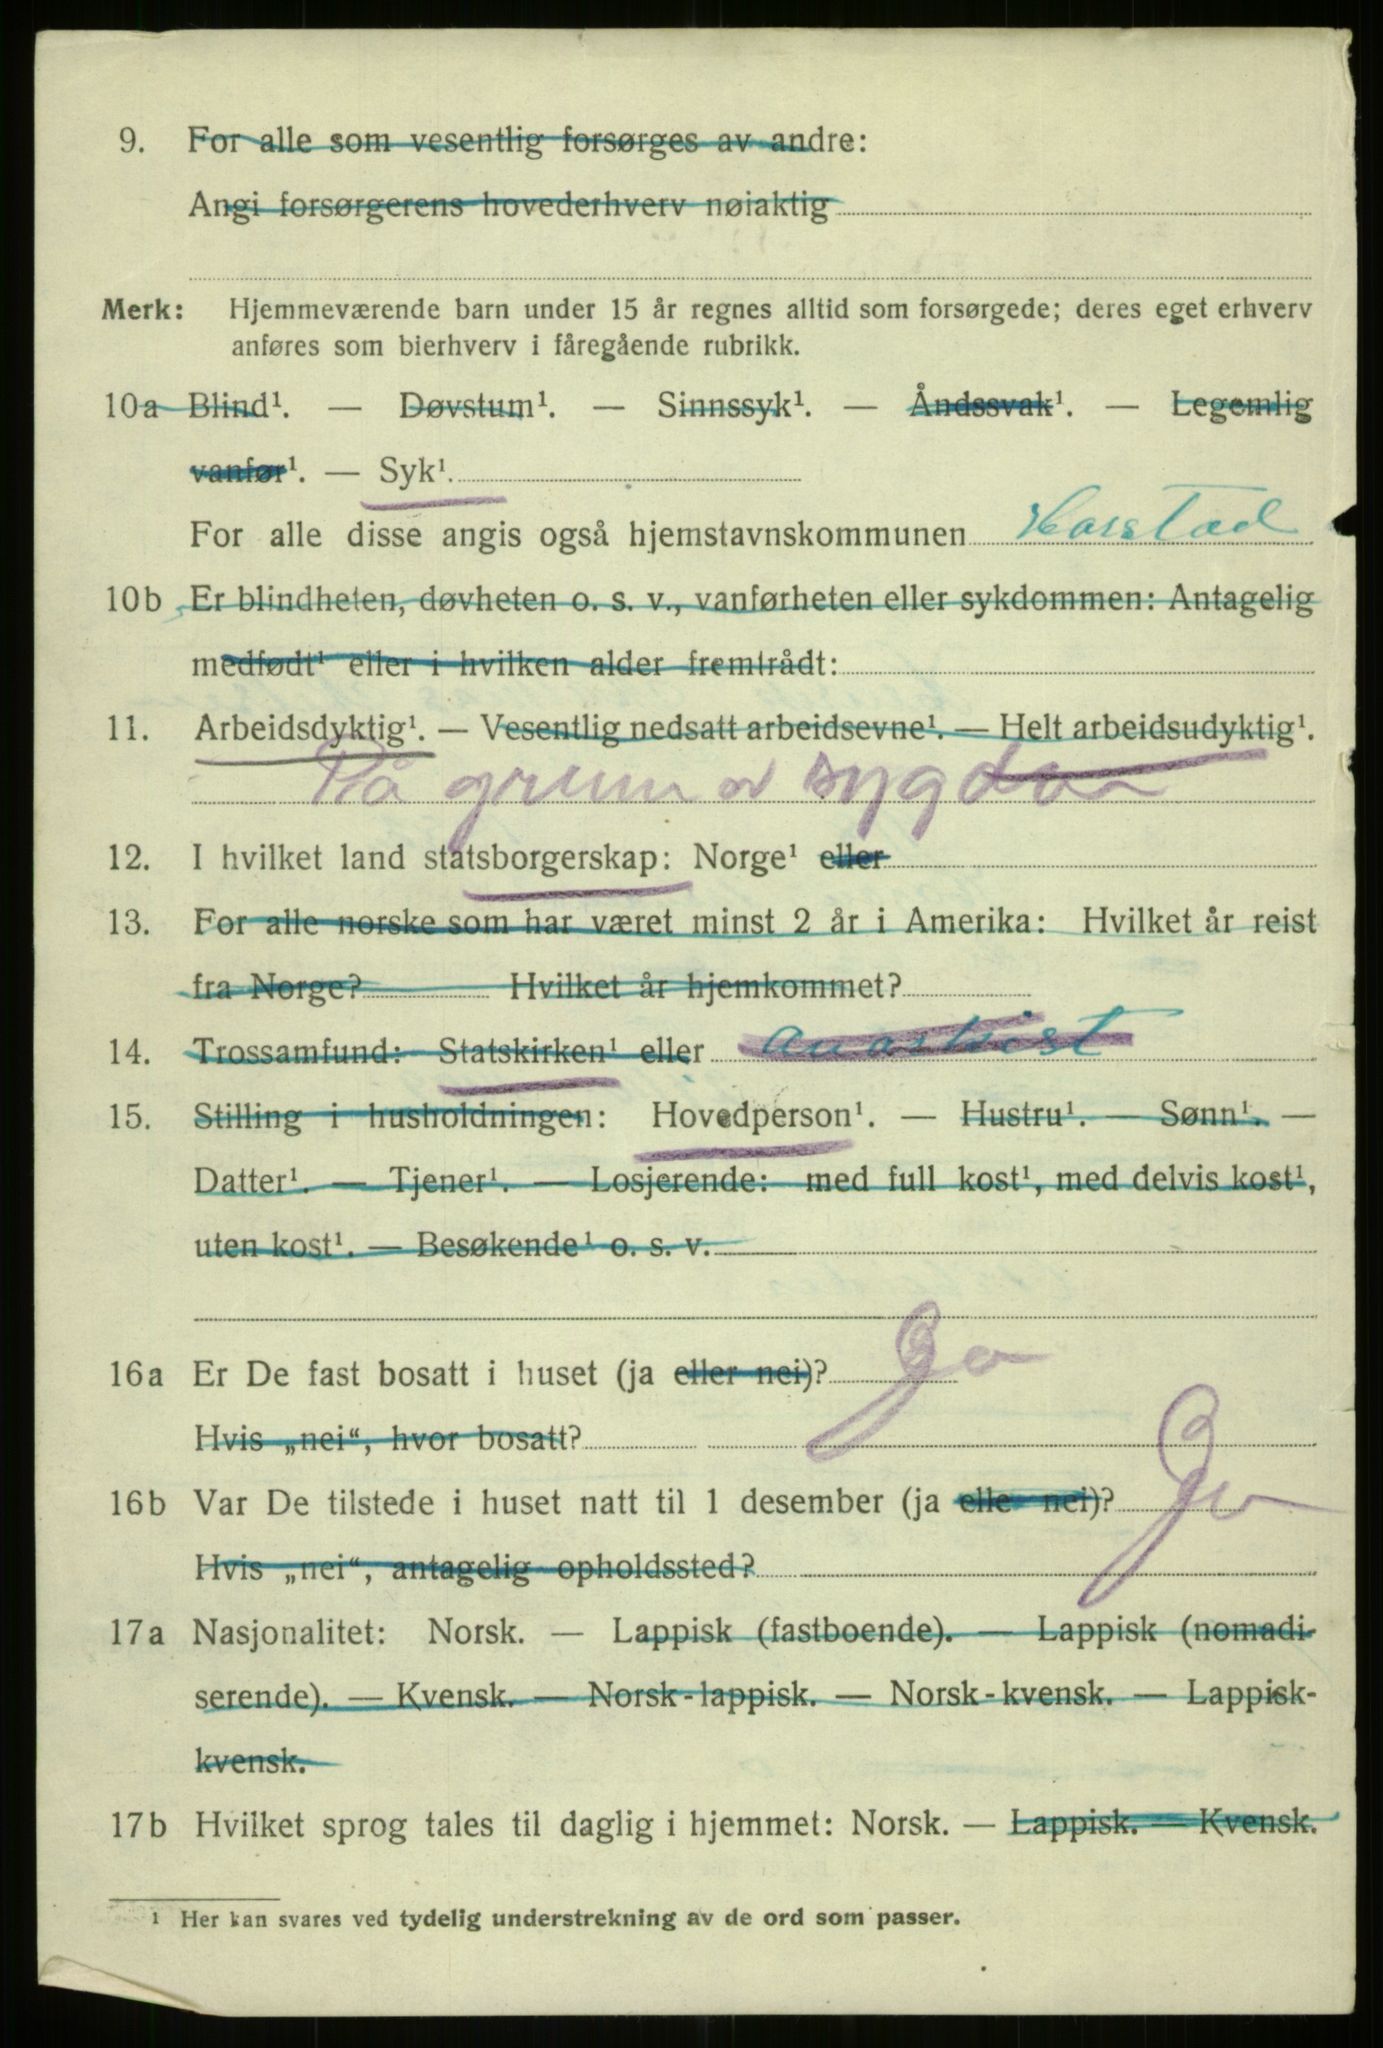 9. For alle som vesentlig forsørges av andre:
Angi forsørgerens hovederhverv nøiaktig
Merk: Hjemmeværende barn under 15 år regnes alltid som forsørgede; deres eget erhverv
anføres som bierhverv i fåregående rubrikk.
10a Blind¹. — Døvstum¹. — Sinnssyk¹. — Åndssvak¹. — Legemlig
vanfør¹. — Syk¹.
For alle disse angis også hjemstavnskommunen Harstad
10b Er blindheten, døvheten o. s. v., vanførheten eller sykdommen: Antagelig
medfødt¹ eller i hvilken alder fremtrådt:
11. Arbeidsdyktig¹. — Vesentlig nedsatt arbeidsevne¹. — Helt arbeidsudyktig¹.
På grunn av sygdom
12. I hvilket land statsborgerskap: Norge¹ eller
13. For alle norske som har været minst 2 år i Amerika: Hvilket år reist
fra Norge? Hvilket år hjemkommet?
14. Trossamfund: Statskirken¹ eller anarkist
15. Stilling i husholdningen: Hovedperson¹. — Hustru¹. — Sønn¹. —
Datter¹. — Tjener¹. — Losjerende: med full kost¹, med delvis kost¹,
uten kost¹. — Besøkende¹ o. s. v.
16a Er De fast bosatt i huset (ja eller nei)? Ja
Hvis „nei“, hvor bosatt?
16b Var De tilstede i huset natt til 1 desember (ja elle nei)? Ja
Hvis „nei“, antagelig opholdssted?
17a Nasjonalitet: Norsk. — Lappisk (fastboende). — Lappisk (nomadi-
serende). — Kvensk. — Norsk-lappisk. — Norsk-kvensk. — Lappisk-
kvensk.
17b Hvilket sprog tales til daglig i hjemmet: Norsk. — Lappisk. — Kvensk.
¹ Her kan svares ved tydelig understrekning av de ord som passer.